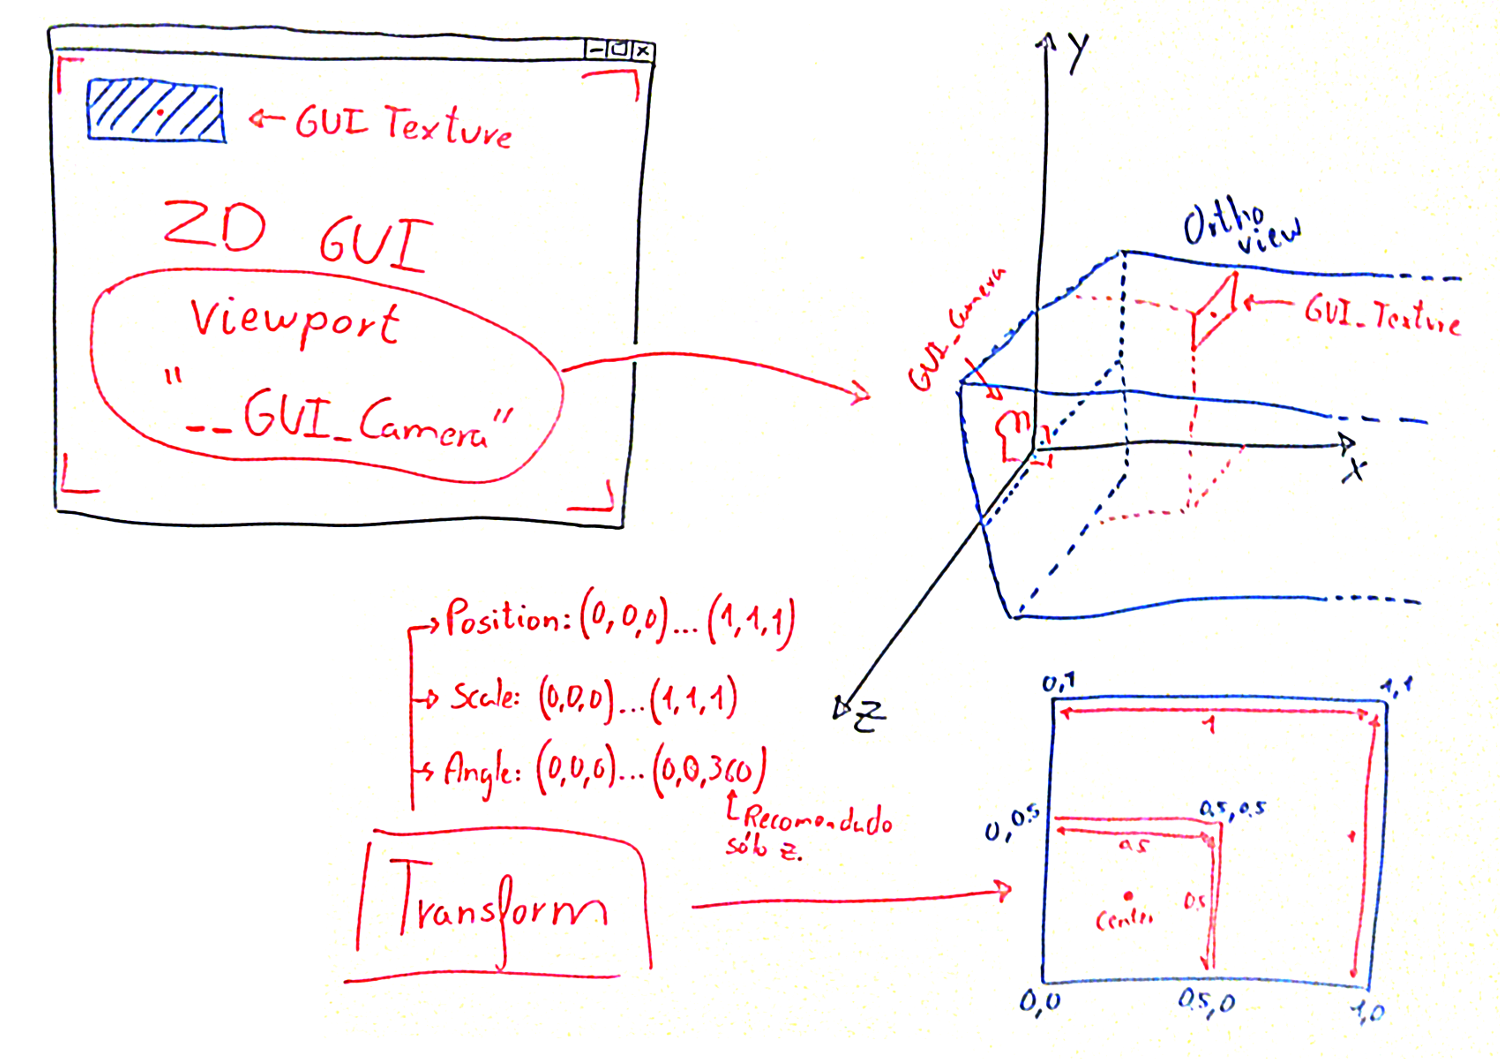 GUI Texture
2D GUI
Viewport
"__GUI_Camera"
Y
Ortho
view
GUI_Camera
GUI_Texture
X
Z
Position: (0,0,0)...(1,1,1)
Scale: (0,0,0)...(1,1,1)
Angle: (0,0,0)...(0,0,360)
Recomendado
sólo z.
Transform
0,1
1,1
1
0,0.5
0.5,0.5
0.5
1
0.5
Center
0,0
0.5,0
1,0